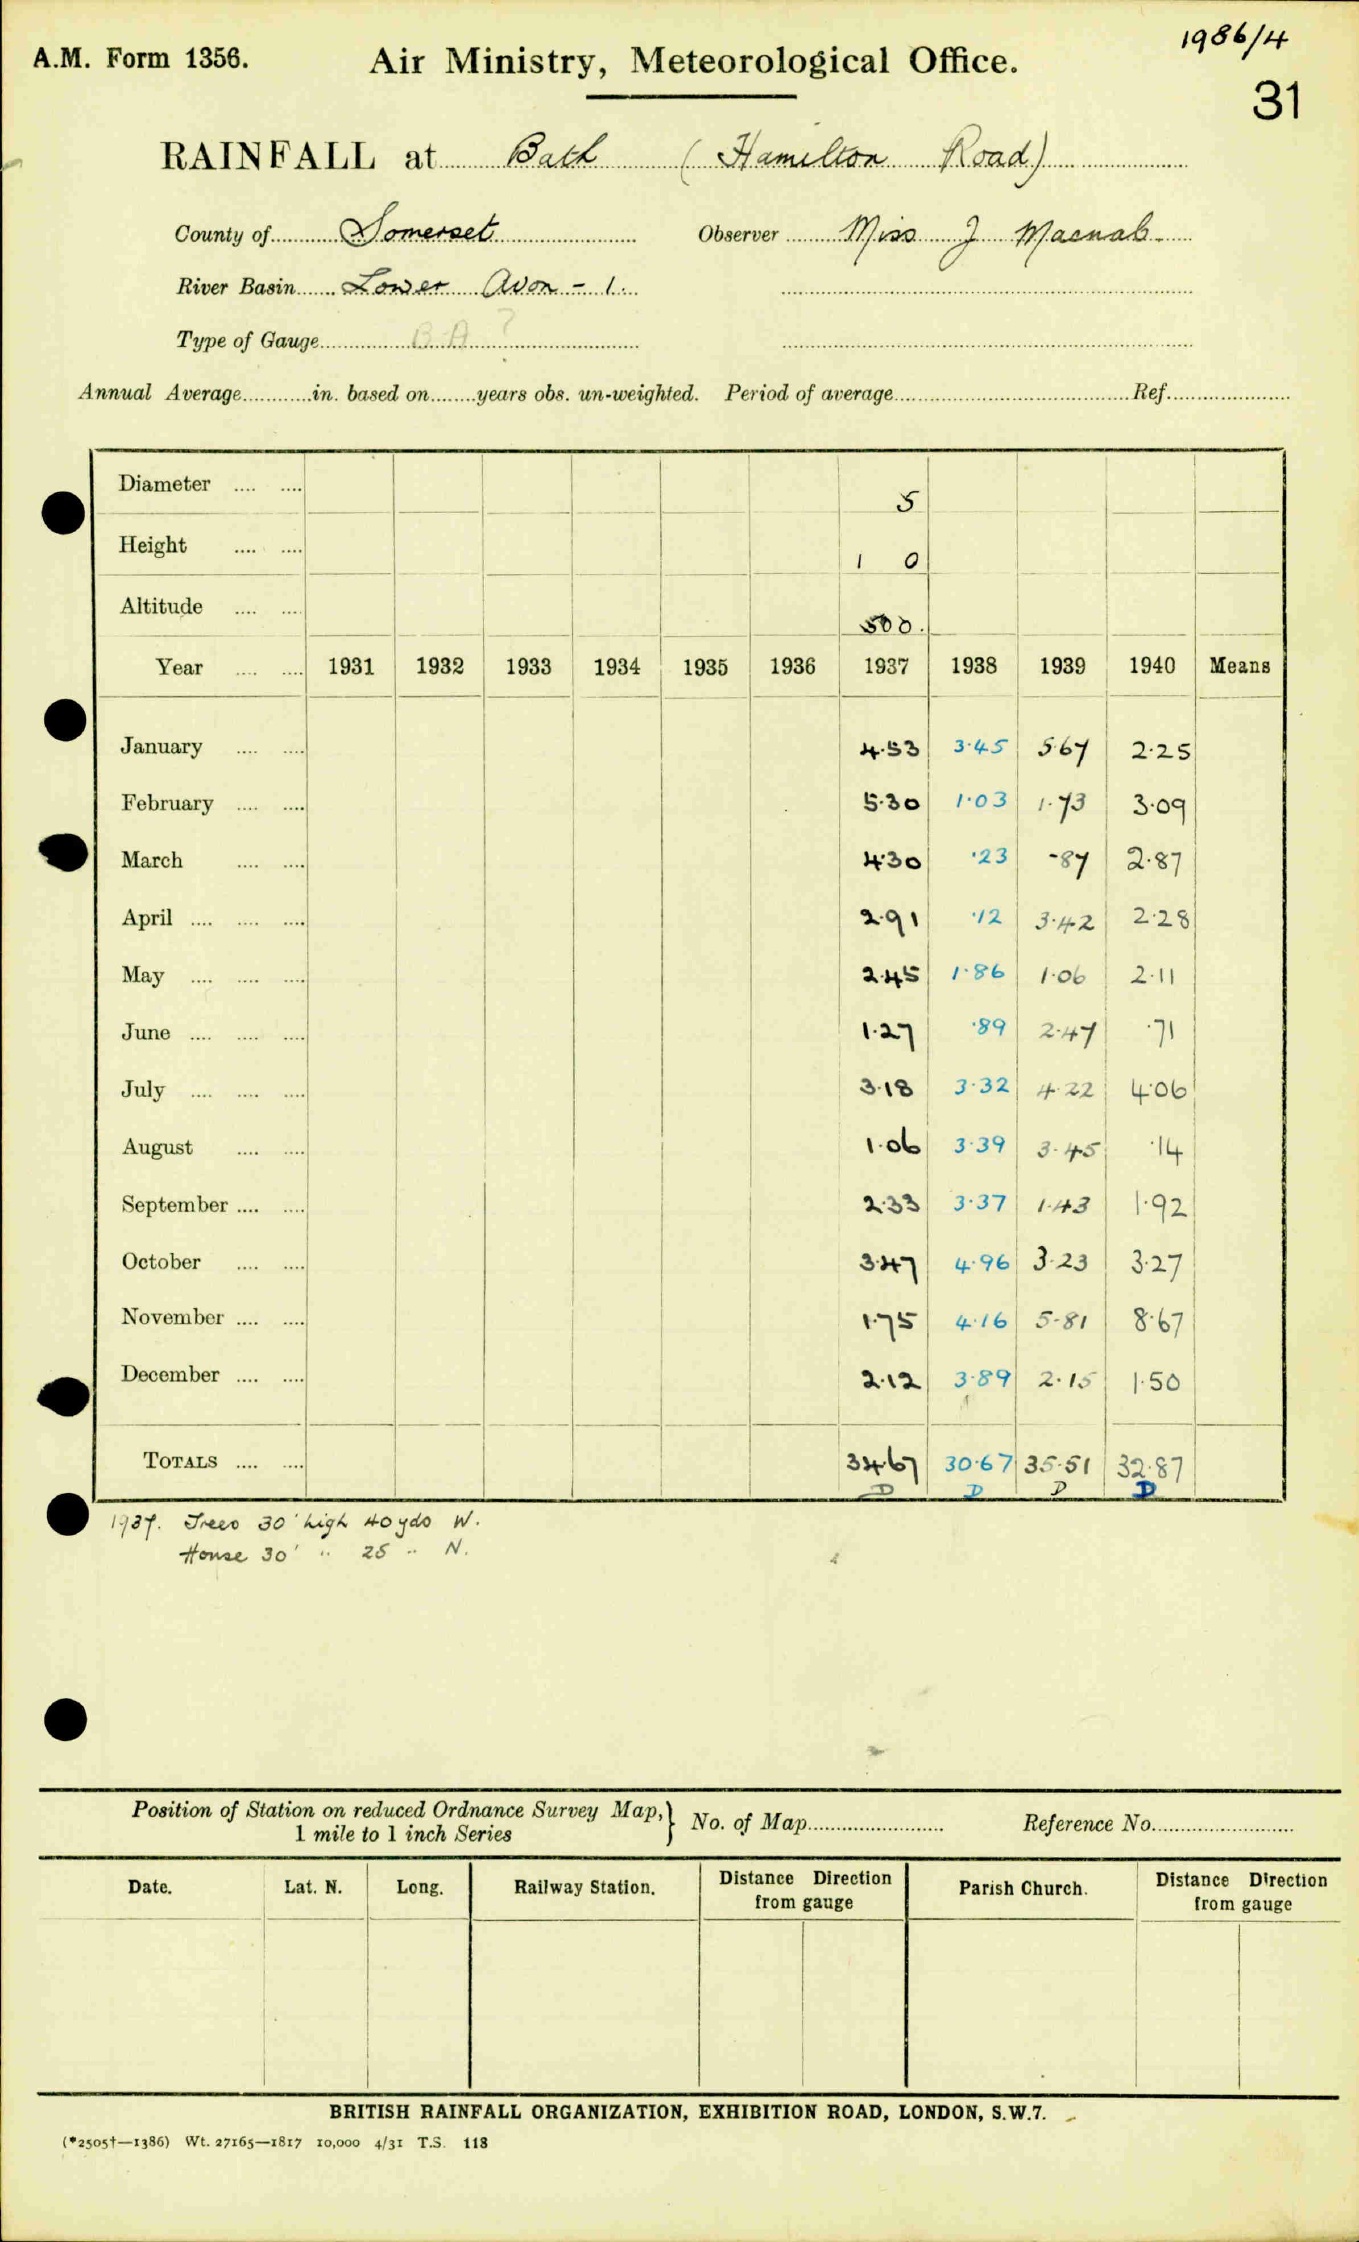 1986/4
A.M. Form 1356. Air Ministry, Meteorological Office.
31
RAINFALL at Bath (Hamilton Road)
County of Somerset Observer Miss J Macnab.
River Basin Lower Avon - 1.
Type of Gauge B.A ?
Annual Average in. based on years obs. un-weighted. Period of average Ref.
Diameter 5
Height 1 0
Altitude 500.
Year 1931 1932 1933 1934 1935 1936 1937 1938 1939 1940 Means
January 4.53 3.45 5.67 2.25
February 5.30 1.03 1.73 3.09
March 4.30 .23 .87 2.87
April 2.91 .12 3.42 2.28
May 2.45 1.86 1.06 2.11
June 1.27 .89 2.47 .71
July 3.18 3.32 4.22 4.06
August 1.06 3.39 3.45 .14
September 2.33 3.37 1.43 1.92
October 3.47 4.96 3.23 3.27
November 1.75 4.16 5.81 8.67
December 2.12 3.89 2.15 1.50
TOTALS 34.67 30.67 35.51 32.87
D D D D
1937. Trees 30' high 40 yds W.
House 30' " 25 " N.
Position of Station on reduced Ordnance Survey Map, } No. of Map Reference No.
1 mile to 1 inch Series
Date. Lat. N. Long. Railway Station. Distance Direction from gauge Parish Church. Distance Direction from gauge
BRITISH RAINFALL ORGANIZATION, EXHIBITION ROAD, LONDON, S.W.7.
(*2505†—1386) Wt. 27165—1817 10,000 4/31 T.S. 118